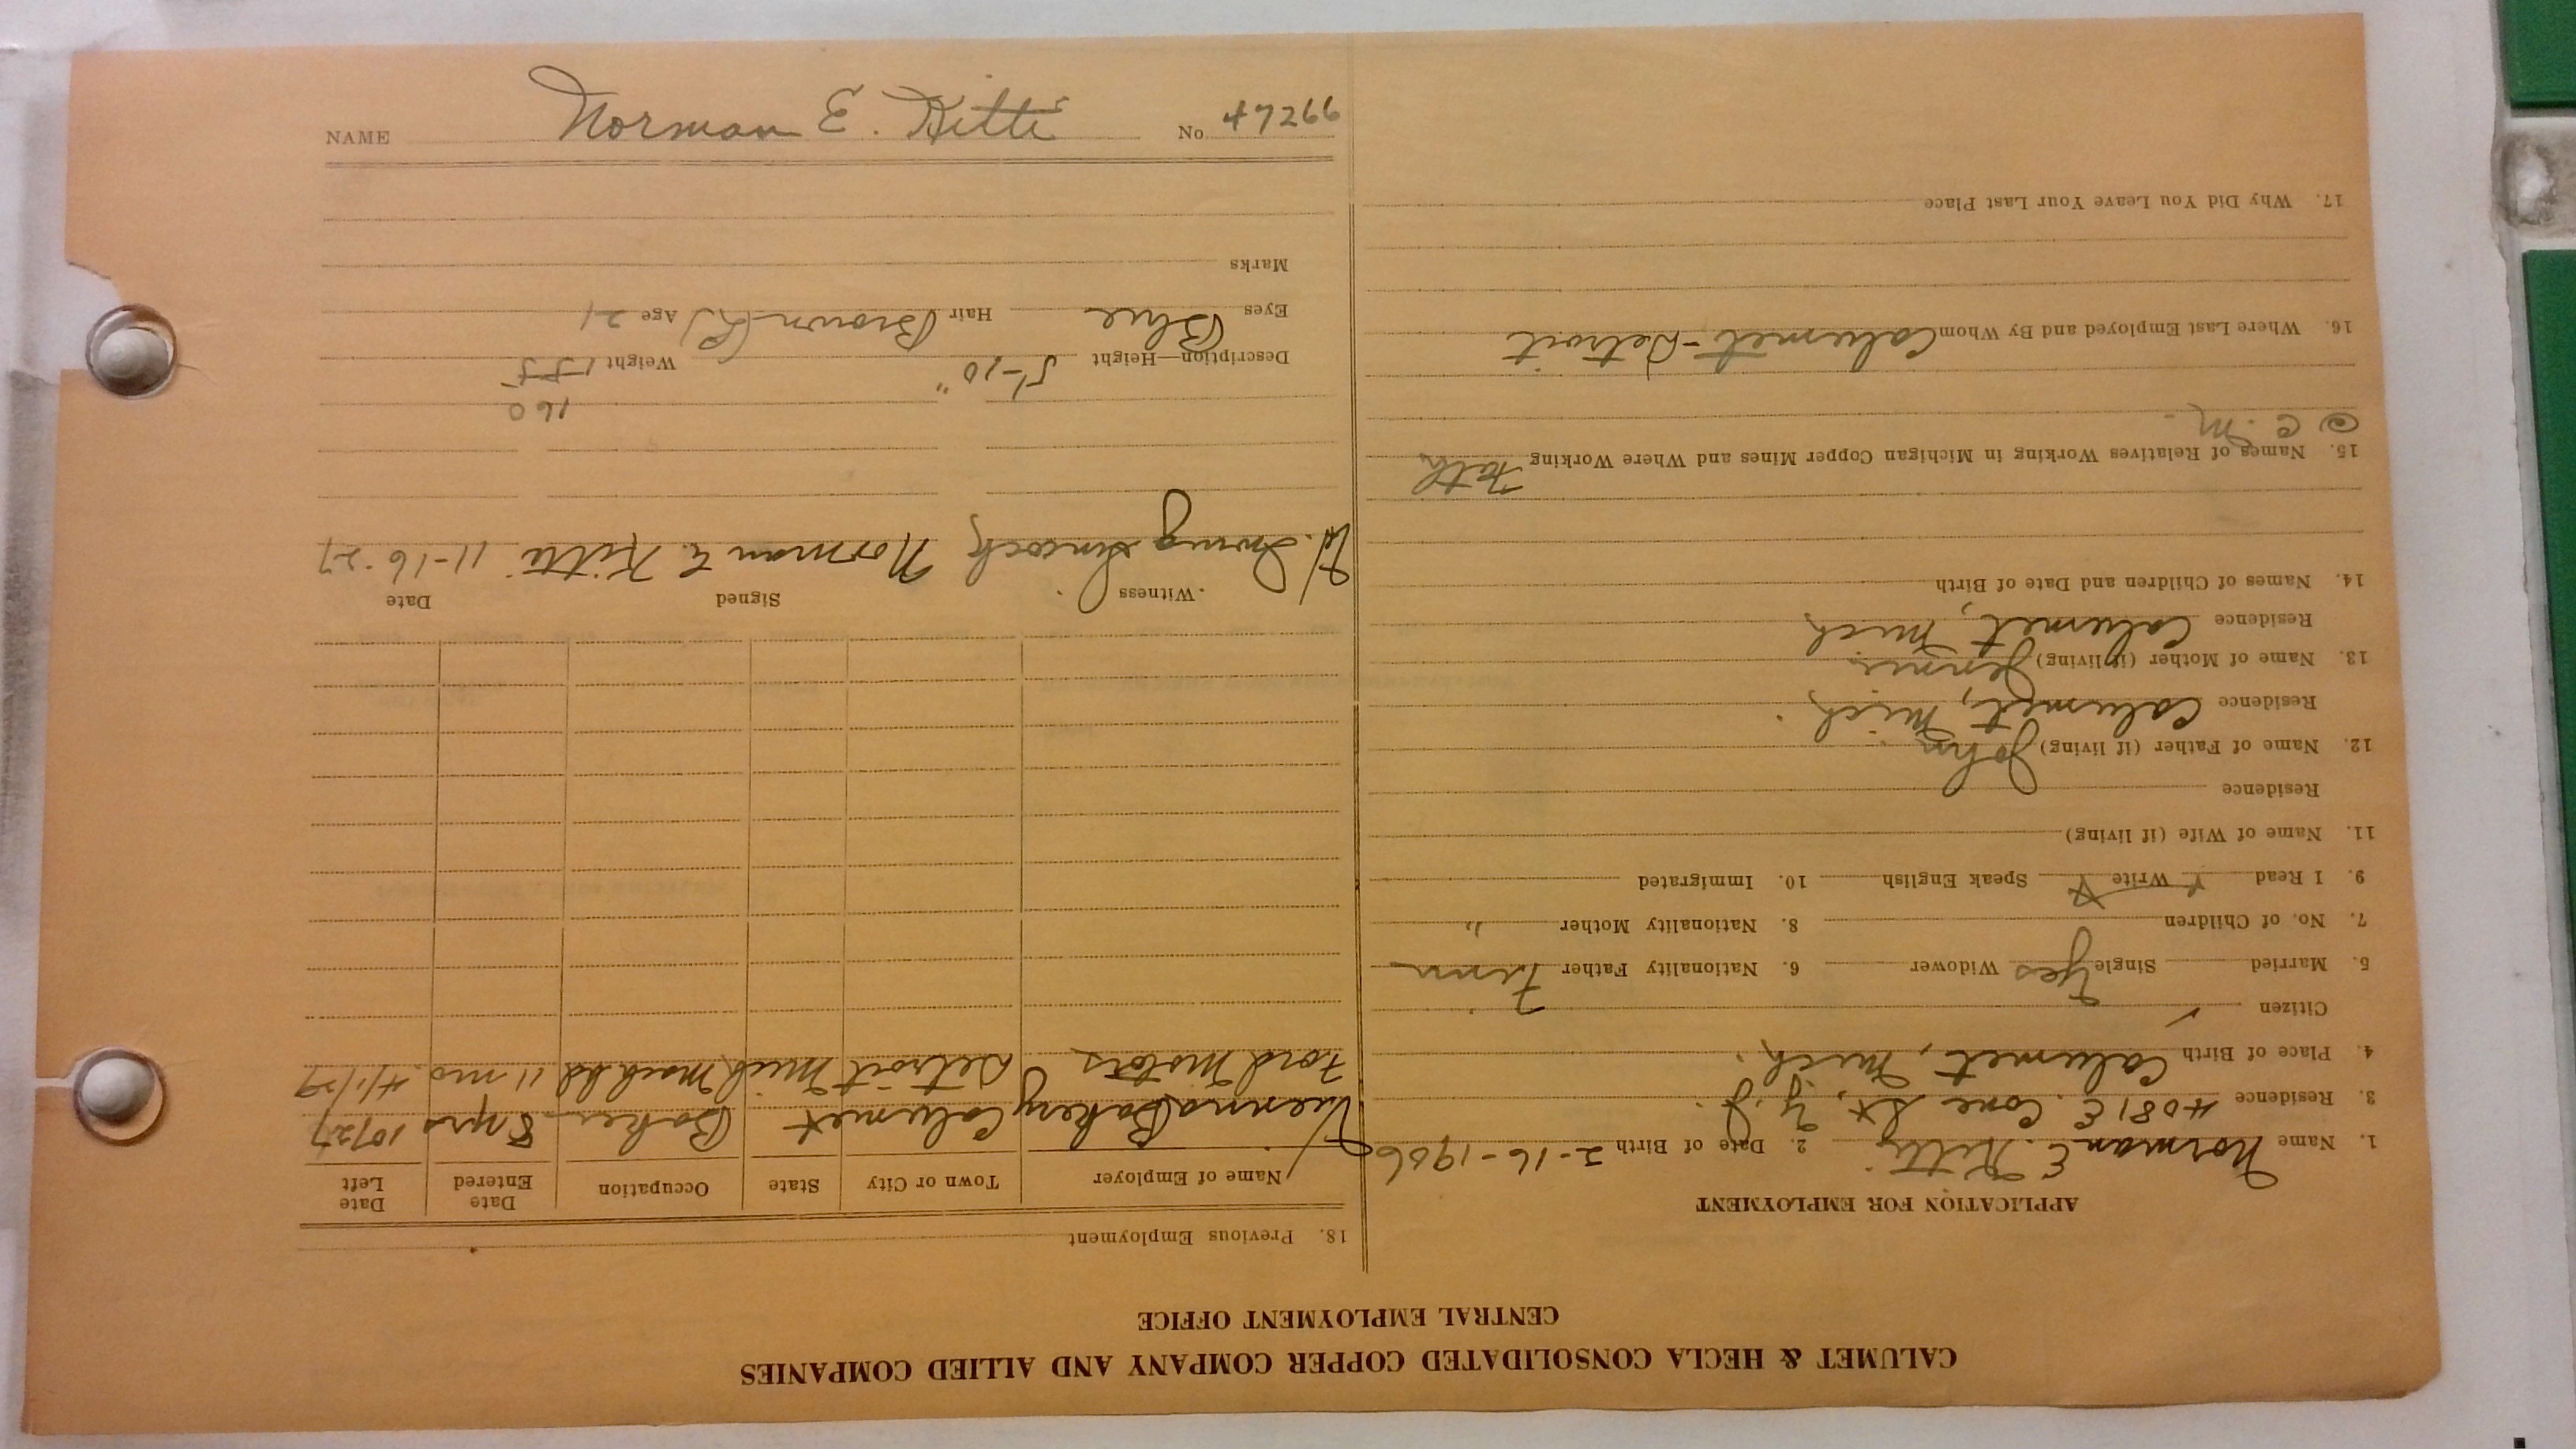 CALUMET & HECLA CONSOLIDATED COPPER COMPANY AND ALLIED COMPANIES
CENTRAL EMPLOYMENT OFFICE
APPLICATION FOR EMPLOYMENT
1. Name Norman E. Kitti 2. Date of Birth 2-16-1906
3. Residence 4081 E. Cone St., Y. J.
4. Place of Birth Calumet, Mich.
Citizen ✓
5. Married Single Yes Widower 6. Nationality Father Finn
7. No. of Children 8. Nationality Mother "
9. I Read Y Write Y Speak English 10. Immigrated
11. Name of Wife (if living)
Residence
12. Name of Father (if living) John
Residence Calumet, Mich.
13. Name of Mother (if living) Jennie
Residence Calumet, Mich
14. Names of Children and Date of Birth
15. Names of Relatives Working in Michigan Copper Mines and Where Working Fath
@ C. M.
16. Where Last Employed and By Whom Calumet - Detroit
17. Why Did You Leave Your Last Place
18. Previous Employment
Name of Employer Town or City State Occupation Date Entered Date Left
Vienna Bakery Calumet Baker 8 yrs 10/27
Ford Motors Detroit Mich Mach hd 11 mo. 4/1/29
Witness Signed Date
W. Irving Sincock Norman E. Kitti 11-16-27
160
Description—Height 5'-10" Weight 155
Eyes Blue Hair Brown (L) Age 21
Marks
NAME Norman E. Kitti No. 47266